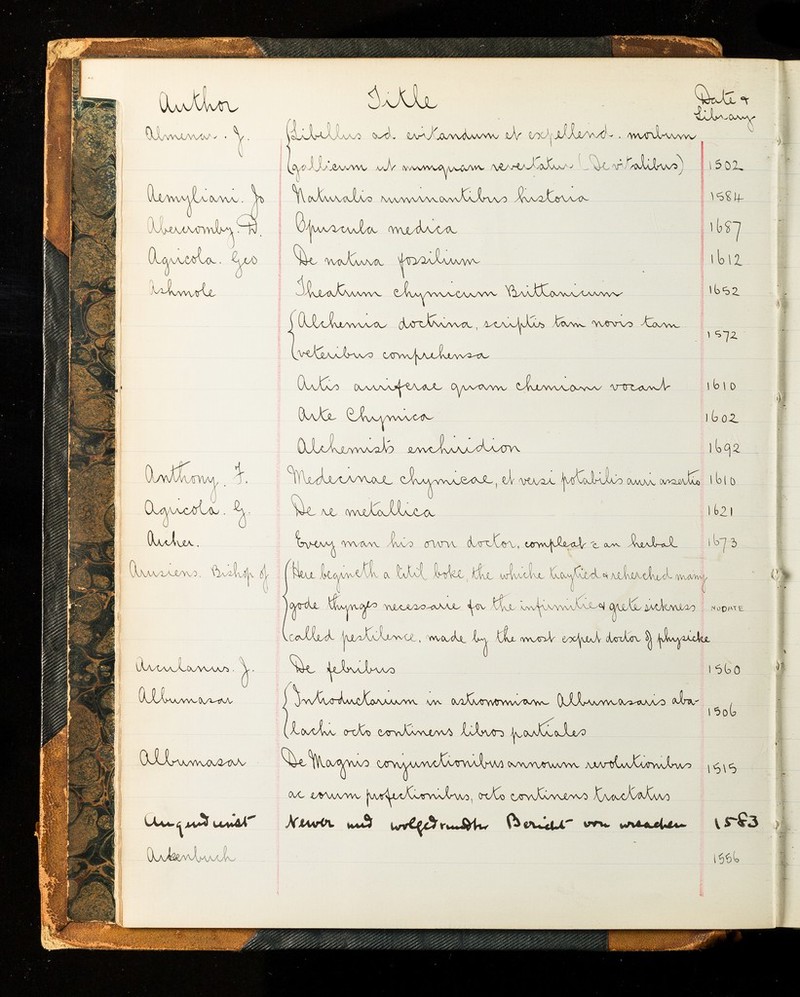 Author Title Date & Library
Almenar. J. Libellus ad. evitandum et expellend. morbum
gallicum ut nunquam revertatur (De vitalibus) 1502
Aemyliani. Jo Naturalis ruminantibus historia 1584
Abercromby. D. Opuscula medica 1687
Agricola. Geo De natura fossilium 1612
Ashmole Theatrum chymicum Brittanicum 1652
Alchemia doctrina, scriptis tam novis tam
veteribus comprehensa 1572
Artis auriferae quam chemiam vocant 1610
Arte Chymica 1602
Alchemists enchiridion 1692
Anthony. F. Medecinae chymicae, et versi potabilis auri assertio 1610
Agricola. G. De re metallica 1621
Archer. Every man his own doctor, compleat & an herbal 1673
Arusiens. Bishop of Here begineth a litil boke the whiche traytied & reherched many
gode thynges necessarie for the infirmitie & grete sickness NO DATE
called pestilence, made by the most expert doctor of physicke
Arculanus. J. De febribus 1560
Albumasar Introductarium in astronomiam Albumasaris aba-
lachi octo continens libros partiales 1506
Albumasar De Magnis conjunctionibus annorum revolutionibus 1515
ac eorum profectionibus, octo continens tractatus
Newer und wolgedrundter Bericht von 1583
Arkenbuch 1556